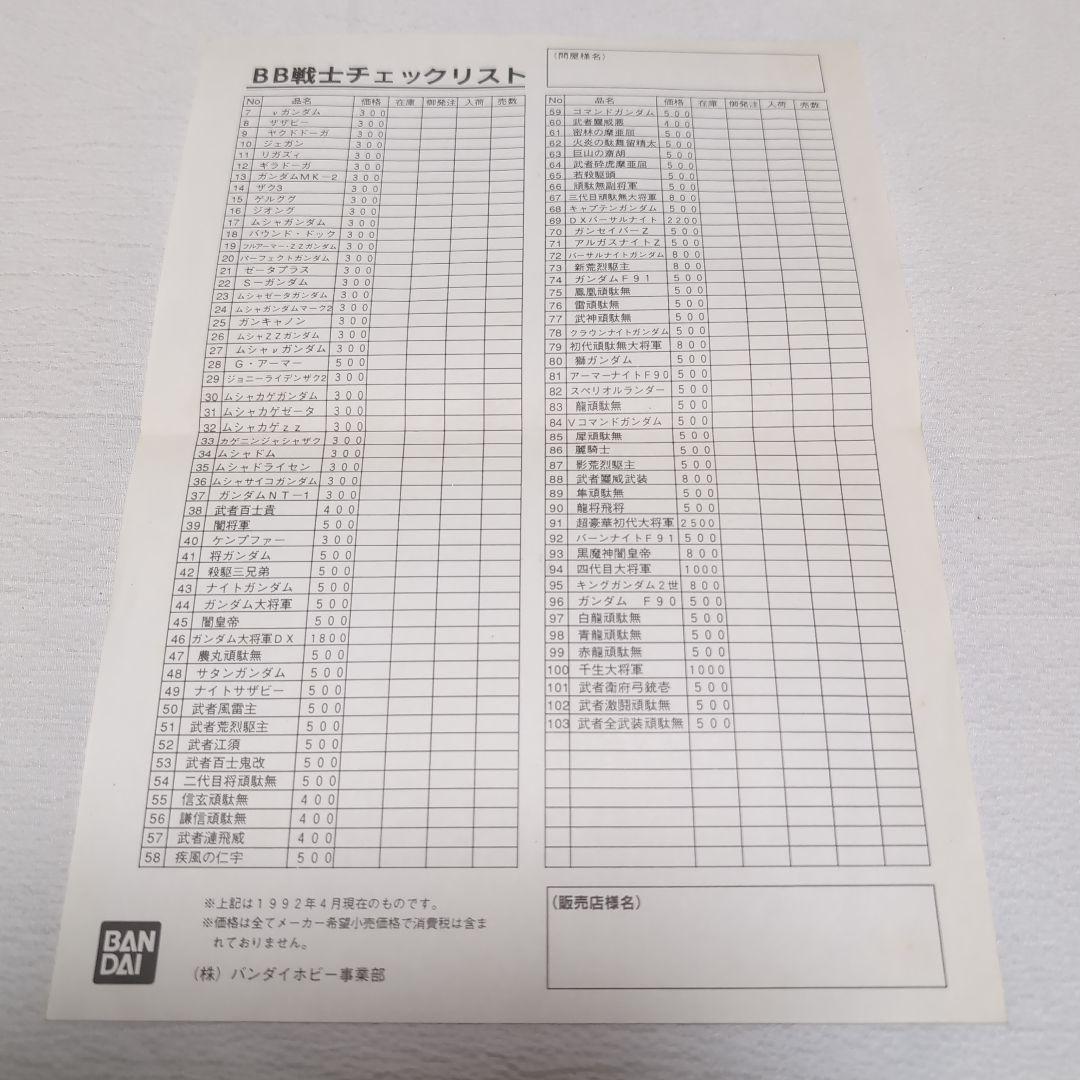 BB戦士チェックリスト
(問屋様名)
No 品名 価格 在庫 御発注 入荷 売数
7 νガンダム 300
8 サザビー 300
9 ヤクドドーガ 300
10 ジェガン 300
11 リガズィ 300
12 ギラドーガ 300
13 ガンダムMK-2 300
14 ザク3 300
15 ゲルググ 300
16 ジオング 300
17 ムシャガンダム 300
18 バウンド・ドック 300
19 フルアーマー・ZZガンダム 300
20 パーフェクトガンダム 300
21 ゼータプラス 300
22 S-ガンダム 300
23 ムシャゼータガンダム 300
24 ムシャガンダムマーク2 300
25 ガンキャノン 300
26 ムシャZZガンダム 300
27 ムシャνガンダム 300
28 G・アーマー 500
29 ジョニーライデンザク2 300
30 ムシャカゲガンダム 300
31 ムシャカゲゼータ 300
32 ムシャカゲzz 300
33 カゲニンジャシャザク 300
34 ムシャドム 300
35 ムシャドライセン 300
36 ムシャサイコガンダム 300
37 ガンダムNT-1 300
38 武者百士貴 400
39 闇将軍 500
40 ケンプファー 300
41 将ガンダム 500
42 殺駆三兄弟 500
43 ナイトガンダム 500
44 ガンダム大将軍 500
45 闇皇帝 500
46 ガンダム大将軍DX 1800
47 農丸頑駄無 500
48 サタンガンダム 500
49 ナイトサザビー 500
50 武者風雷主 500
51 武者荒烈駆主 500
52 武者江須 500
53 武者百士鬼改 500
54 二代目将頑駄無 500
55 信玄頑駄無 400
56 謙信頑駄無 400
57 武者漣飛威 400
58 疾風の仁宇 500
No 品名 価格 在庫 御発注 入荷 売数
59 コマンドガンダム 500
60 武者璽威悪 400
61 密林の摩亜屈 500
62 火炎の駄舞留精太 500
63 巨山の斎胡 500
64 武者砕虎摩亜屈 500
65 若殺駆頭 500
66 頑駄無副将軍 500
67 三代目頑駄無大将軍 800
68 キャプテンガンダム 500
69 DXバーサルナイト 2200
70 ガンセイバーZ 500
71 アルガスナイトZ 500
72 バーサルナイトガンダム 800
73 新荒烈駆主 800
74 ガンダムF91 500
75 鳳凰頑駄無 500
76 雷頑駄無 500
77 武神頑駄無 500
78 クラウンナイトガンダム 500
79 初代頑駄無大将軍 800
80 獅ガンダム 500
81 アーマーナイトF90 500
82 スペリオルランダー 500
83 龍頑駄無 500
84 Vコマンドガンダム 500
85 犀頑駄無 500
86 麗騎士 500
87 影荒烈駆主 500
88 武者璽威武装 800
89 隼頑駄無 500
90 龍将飛将 500
91 超豪華初代大将軍 2500
92 バーンナイトF91 500
93 黒魔神闇皇帝 800
94 四代目大将軍 1000
95 キングガンダム2世 800
96 ガンダム F90 500
97 白龍頑駄無 500
98 青龍頑駄無 500
99 赤龍頑駄無 500
100 千生大将軍 1000
101 武者衛府弓銃壱 500
102 武者激闘頑駄無 500
103 武者全武装頑駄無 500
※上記は1992年4月現在のものです。
※価格は全てメーカー希望小売価格で消費税は含ま
れておりません。
BAN
DAI
(株)バンダイホビー事業部
(販売店様名)